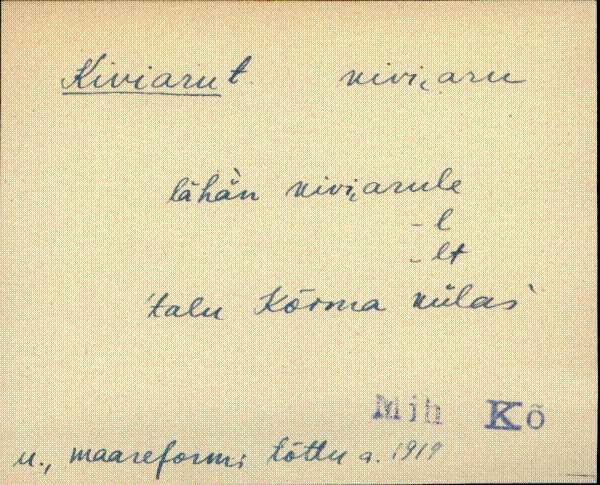 Kiviaru t kivi,aru
lähän kivi,arule
-l
-lt
'talu Kõrma külas
Mih Kõ
u., maareformi tõttu a. 1919